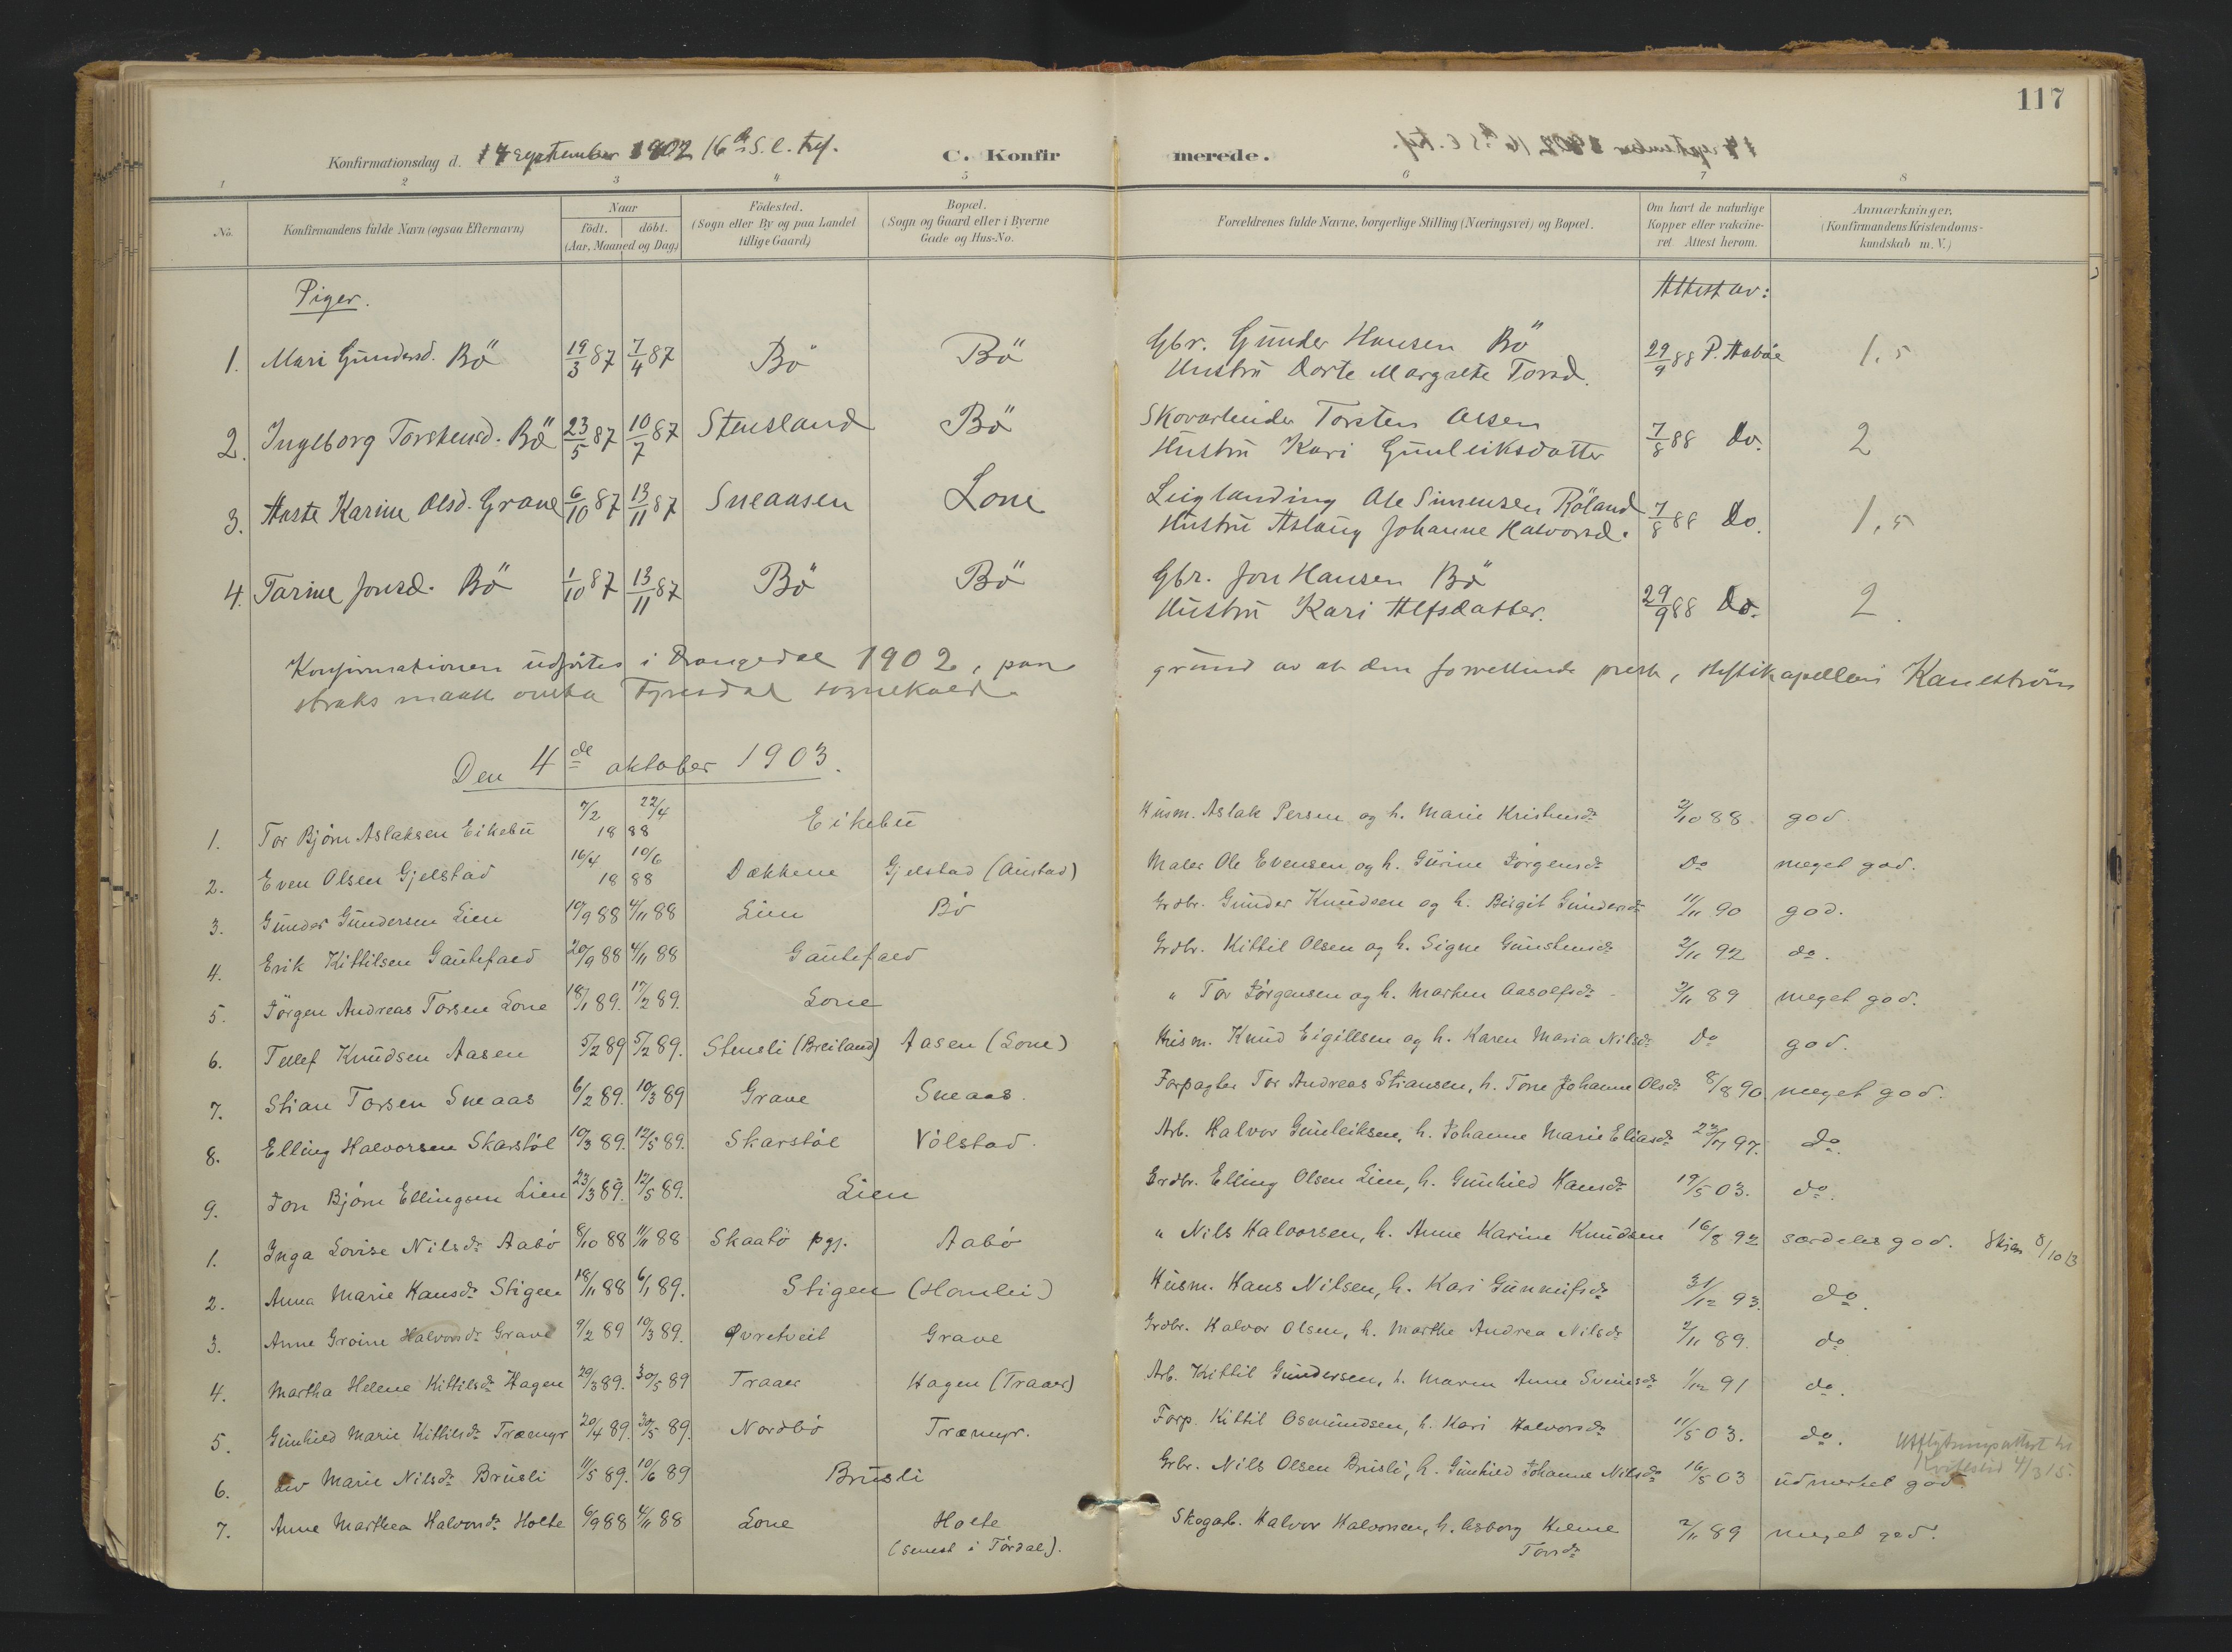 117
Konfirmationsdag d. 14 September 1902 16de S. e. tref. C. Konfirmerede.
1 2 3 4 5 6 7 8
No. Konfirmandens fulde Navn (ogsaa Efternavn) Naar födt. döbt. (Aar, Maaned og Dag) Födested. (Sogn eller By og paa Landet tillige Gaard) Bopæl. (Sogn og Gaard eller i Byerne Gade og Hus-No. Forældrenes fulde Navne, borgerlige Stilling (Næringsvei) og Bopæl. Om havt de naturlige Kopper eller vakcineret Attest herom. Anmærkninger. (Konfirmandens Kristendomskundskab m. V.)
Piger. Attest av:
1. Mari Gundersd. Bö 19/3 87 7/4 87 Bö Bö Gbr. Gunder Hansen Bö 29/9 88 P. Aabøe 1,5
Hustru Dorte Margrete Torsd.
2. Ingeborg Torstensd. Bö 23/5 87 10/7 87 Stensland Bö Skovarbeider Torsten Olsen 7/8 88 Do. 2
Hustru Kari Gunleiksdatter
3. Aaste Karine Olsd. Grave 6/10 87 13/11 87 Sneaasen Lone Leiglænding Ole Simensen Röland 7/8 88 Do. 1,5
Hustru Aslaug Johanne Halvorsd.
4. Tarine Jonsd. Bö 1/10 87 13/11 87 Bö Bö Gbr. Jon Hansen Bö 29/9 88 Do. 2
Hustru Kari Alfsdatter.
Konfirmationen udførtes i Drangedal 1902, paa grund av at den forrettende prest, stiftskapellan Kaneström
straks maatte overta Tyrisdal sognekald.
Den 4de oktober 1903.
1. Tor Bjørn Aslaksen Eikebu 7/2 22/4 1888 Eikebu Husm. Aslak Persen og h. Marie Kristensdr 2/10 88 god.
2. Even Olsen Gjelstad 16/4 10/6 1888 Dækkene Gjelstad (Austad) Maler Ole Evensen og h. Gurine Jørgensdr Do meget god.
3. Gunder Gundersen Lien 19/9 88 4/11 88 Lien Bö Grdbr. Gunder Knudsen og h. Birgit Gundersdr 11/11 90 god.
4. Erik Kittilsen Gautefald 20/9 88 4/11 88 Gautefald Grdbr. Kittil Olsen og h. Signe Gunstensdr 2/11 92 do.
5. Jörgen Andreas Torsen Lone 18/1 89. 17/2 89. Lone " Tor Jörgensen og h. Marthen Aasolfsdr 2/11 89 meget god.
6. Tellef Knudsen Aasen 5/2 89 5/2 89. Stensli (Breiland) Aasen (Lone) Husm. Knud Eigillsen og h. Karen Maria Nilsdr Do god.
7. Stian Torsen Sneaas 6/2 89. 10/3 89 Grave Sneaas. Forpagter Tor Andreas Stiansen, h. Tone Johanne Olsdr 8/8 90. meget god.
8. Elling Halvorsen Skarstöl 10/3 89. 12/5 89. Skarstöl Völstad. Arb. Halvor Gunleiksen, h. Johanne Marie Eliasdr 97. do.
9. Jon Bjørn Ellingsen Lien 23/3 89. 12/5 89. Lien Grdbr. Elling Olsen Lien, h. Gunhild Hansdr 19/5 03. do.
1. Inga Lovise Nilsdr Aabö 8/10 88 11/11 88 Skaatö pgj. Aabö " Nils Halvorsen, h. Anne Karine Knudsen 16/8 92 særdeles god. Skien 8/10 13
2. Anna Marie Hansdr Stigen 18/11 88 6/1 89. Stigen (Homlei) Husm. Hans Nilsen, h. Kari Gunnulfsdr 31/12 93. do.
3. Anne Groine Halvorsdr Grave 9/2 89 10/3 89. Øvretveit Grave Grdbr. Halvor Olsen, h. Marthe Andrea Nilsdr 2/11 89. do
4. Martha Helene Kittilsdr Hagen 29/3 89. 30/5 89 Traaer Hagen (Traaer) Arb. Kittil Gundersen, h. Maren Anne Sveinsdr 1/12 91 do.
5. Gunhild Marie Kittilsdr Træmyr 20/4 89. 30/5 89. Nordbö Træmyr. Forp. Kittil Osmundsen, h. Kari Halvorsdr 11/5 03. do. Utflytningsattest til
Kviteseid 4/3 15.
6. Liv Marie Nilsdr Brusli 11/5 89. 10/6 89 Brusli Grbr. Nils Olsen Brusli, h. Gunhild Johanne Nilsdr 16/5 03 udmerket god
7. Anne Marthea Halvorsdr Holte 6/9 88 4/11 88 Lone Holte Skogarb. Halvor Halvorsen, h. Asborg Helene 2/11 89 meget god.
(senest i Tördal). Torsdr